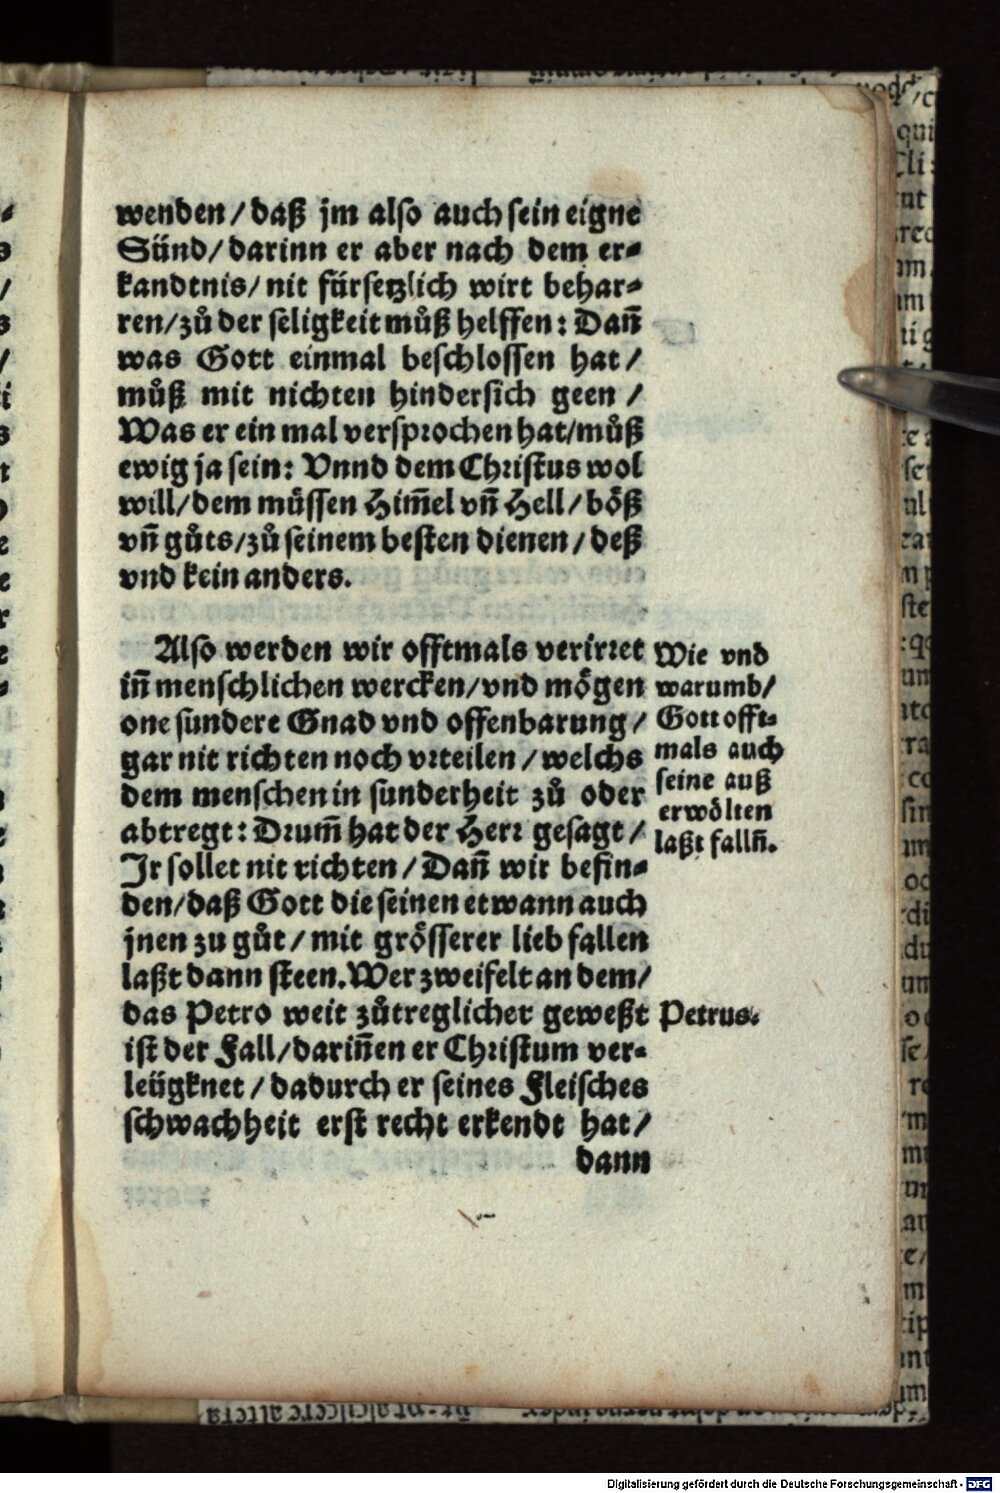 wenden / daß jm also auch sein eigne
Sünd / darinn er aber nach dem er⸗
kandtnis / nit fürsetzlich wirt behar⸗
ren / zů der seligkeit můß helffen: Dañ
was Gott einmal beschlossen hat /
můß mit nichten hindersich geen /
Was er ein mal versprochen hat / můß
ewig ja sein: Vnnd dem Christus wol
will / dem müssen Him̃el vñ Hell / böß
vñ gůts / zů seinem besten dienen / deß
vnd kein anders.
Also werden wir offtmals verirret
iñ menschlichen wercken / vnd mögen
one sundere Gnad vnd offenbarung /
gar nit richten noch vrteilen / welchs
dem menschen in sunderheit zů oder
abtregt: Drum̃ hat der Herr gesagt /
Jr sollet nit richten / Dañ wir befin⸗
den / daß Gott die seinen etwann auch
jnen zu gůt / mit grösserer lieb fallen
laßt dann steen. Wer zweifelt an dem /
das Petro weit zůtreglicher geweßt
ist der Fall / dariñen er Christum ver⸗
leügknet / dadurch er seines Fleisches
schwachheit erst recht erkendt hat /
dann
Wie vnd
warumb /
Gott offt⸗
mals auch
seine auß
erwölten
laßt falln̄.
Petrus.
Digitalisierung gefördert durch die Deutsche Forschungsgemeinschaft - DFG